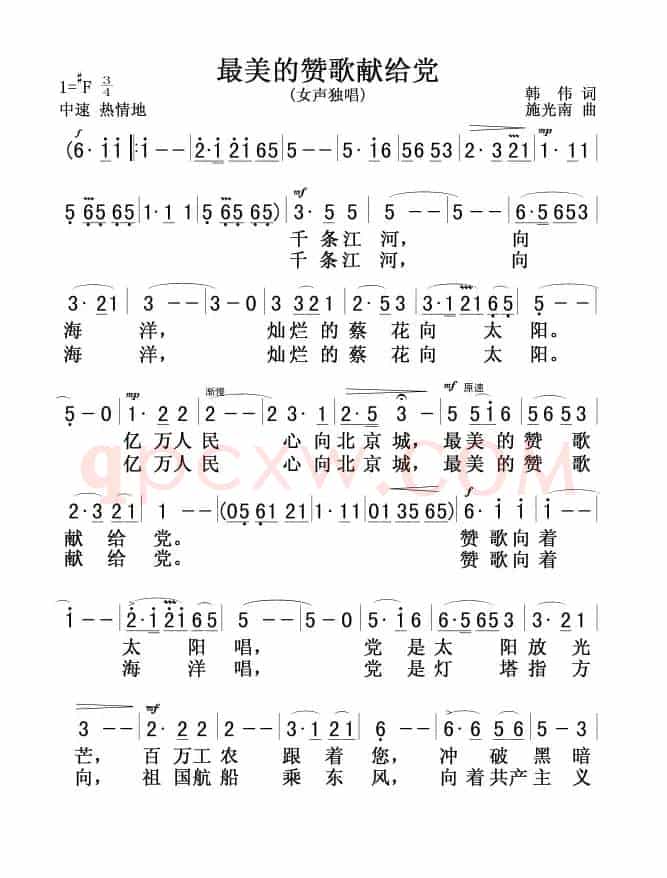 最美的赞歌献给党
(女声独唱)
1=#F 3/4
中速 热情地
韩 伟 词
施光南 曲
f
(6· i i |: i - - | 2·i 2i65 | 5 - - | 5·i6 | 5653 | 2·321 | 1·11 |
mp
5 65 65 | 1·1 1 | 5 65 65) | 3·5 5 | 5 - - | 5 - - | 6·5653 |
mf
千条江河， 向
千条江河， 向
3·21 | 3 - - | 3 - 0 | 3 321 | 2 23 | 3·12165 | 5 - - |
海 洋， 灿烂的蔡花向 太阳。
海 洋， 灿烂的蔡花向 太阳。
mp 渐慢 mf 原速
5 - 0 | 1·22 | 2 - - | 2 3· | 2·5 3 - | 5 5i6 | 5653 |
亿万人民 心向北京城，最美的赞歌
亿万人民 心向北京城，最美的赞歌
qpcxw.COM
f
2·321 | 1 - - | (05 61 21 | 1 - - | 01 35 65) | 6· i i |
献给党。 赞歌向着
献给党。 赞歌向着
i - - | 2·i 2i65 | 5 - - | 5 - 0 | 5·i6 | 6·5653 |
太阳唱， 党是太阳放光
海洋唱， 党是灯塔指方
mf
3 - - | 2·22 | 2 - - | 3·121 | 6 - - | 6·6 | 5653 |
芒，百万工农跟着您，冲破黑暗
向，祖国航船乘东风，向着共产主义